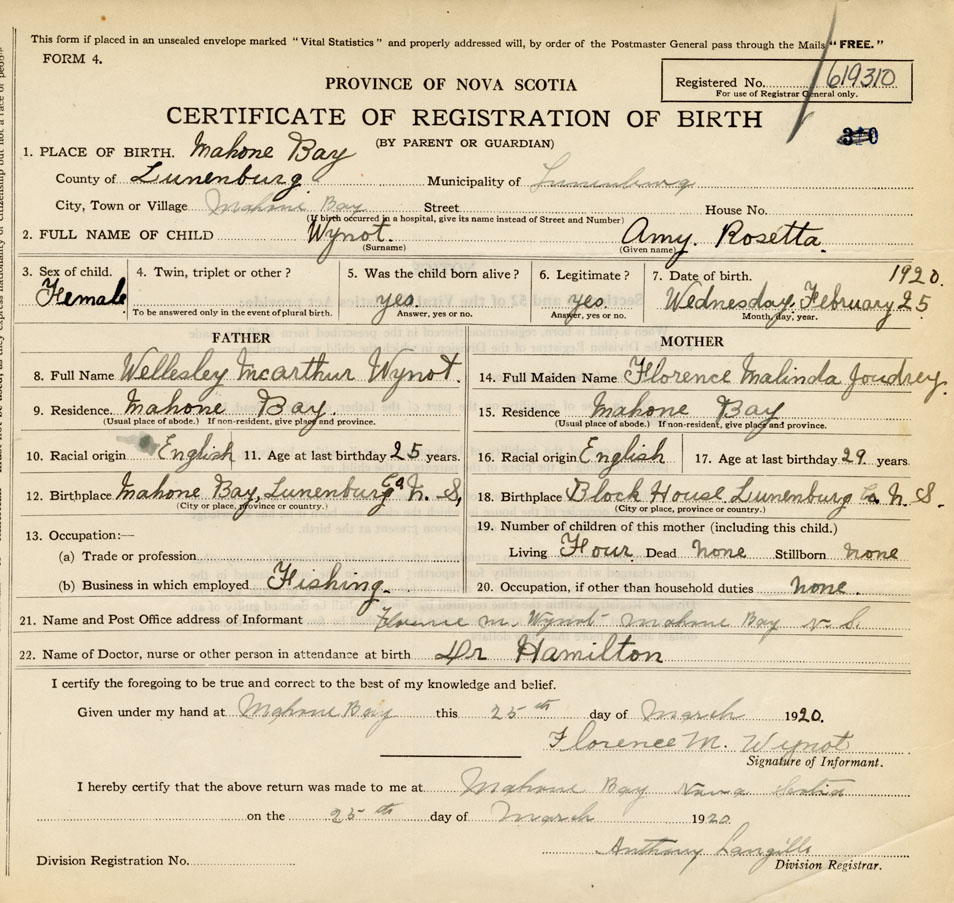 This form if placed in an unsealed envelope marked "Vital Statistics" and properly addressed will, by order of the Postmaster General pass through the Mails "FREE."
FORM 4.
Registered No. 619310
For use of Registrar General only.
PROVINCE OF NOVA SCOTIA
CERTIFICATE OF REGISTRATION OF BIRTH
310
(BY PARENT OR GUARDIAN)
1. PLACE OF BIRTH. Mahone Bay
County of Lunenburg Municipality of Lunenburg
City, Town or Village Mahone Bay Street House No.
(If birth occurred in a hospital, give its name instead of Street and Number)
2. FULL NAME OF CHILD Wynot. Amy. Rosetta.
(Surname) (Given name)
3. Sex of child. 4. Twin, triplet or other? 5. Was the child born alive? 6. Legitimate? 7. Date of birth. 1920.
Female yes. yes. Wednesday, February 25
To be answered only in the event of plural birth. Answer, yes or no. Answer, yes or no. Month, day, year.
FATHER MOTHER
8. Full Name Wellesley Mcarthur Wynot. 14. Full Maiden Name Florence Malinda Joudrey.
9. Residence. Mahone Bay. 15. Residence Mahone Bay
(Usual place of abode.) If non-resident, give place and province. (Usual place of abode.) If non-resident, give place and province.
10. Racial origin English 11. Age at last birthday 25 years. 16. Racial origin English 17. Age at last birthday 29 years.
12. Birthplace Mahone Bay, Lunenburg Co N. S, 18. Birthplace Block House Lunenburg Co N. S.
(City or place, province or country.) (City or place, province or country.)
13. Occupation:— 19. Number of children of this mother (including this child.)
(a) Trade or profession Living Four Dead none Stillborn none
(b) Business in which employed Fishing. 20. Occupation, if other than household duties none.
21. Name and Post Office address of Informant Florence M. Wynot - Mahone Bay N. S.
22. Name of Doctor, nurse or other person in attendance at birth Dr Hamilton
I certify the foregoing to be true and correct to the best of my knowledge and belief.
Given under my hand at Mahone Bay this 25th day of March 1920.
Florence M. Wynot
Signature of Informant.
I hereby certify that the above return was made to me at Mahone Bay Nova Scotia
on the 25th day of March 1920
Anthony Langille
Division Registration No. Division Registrar.